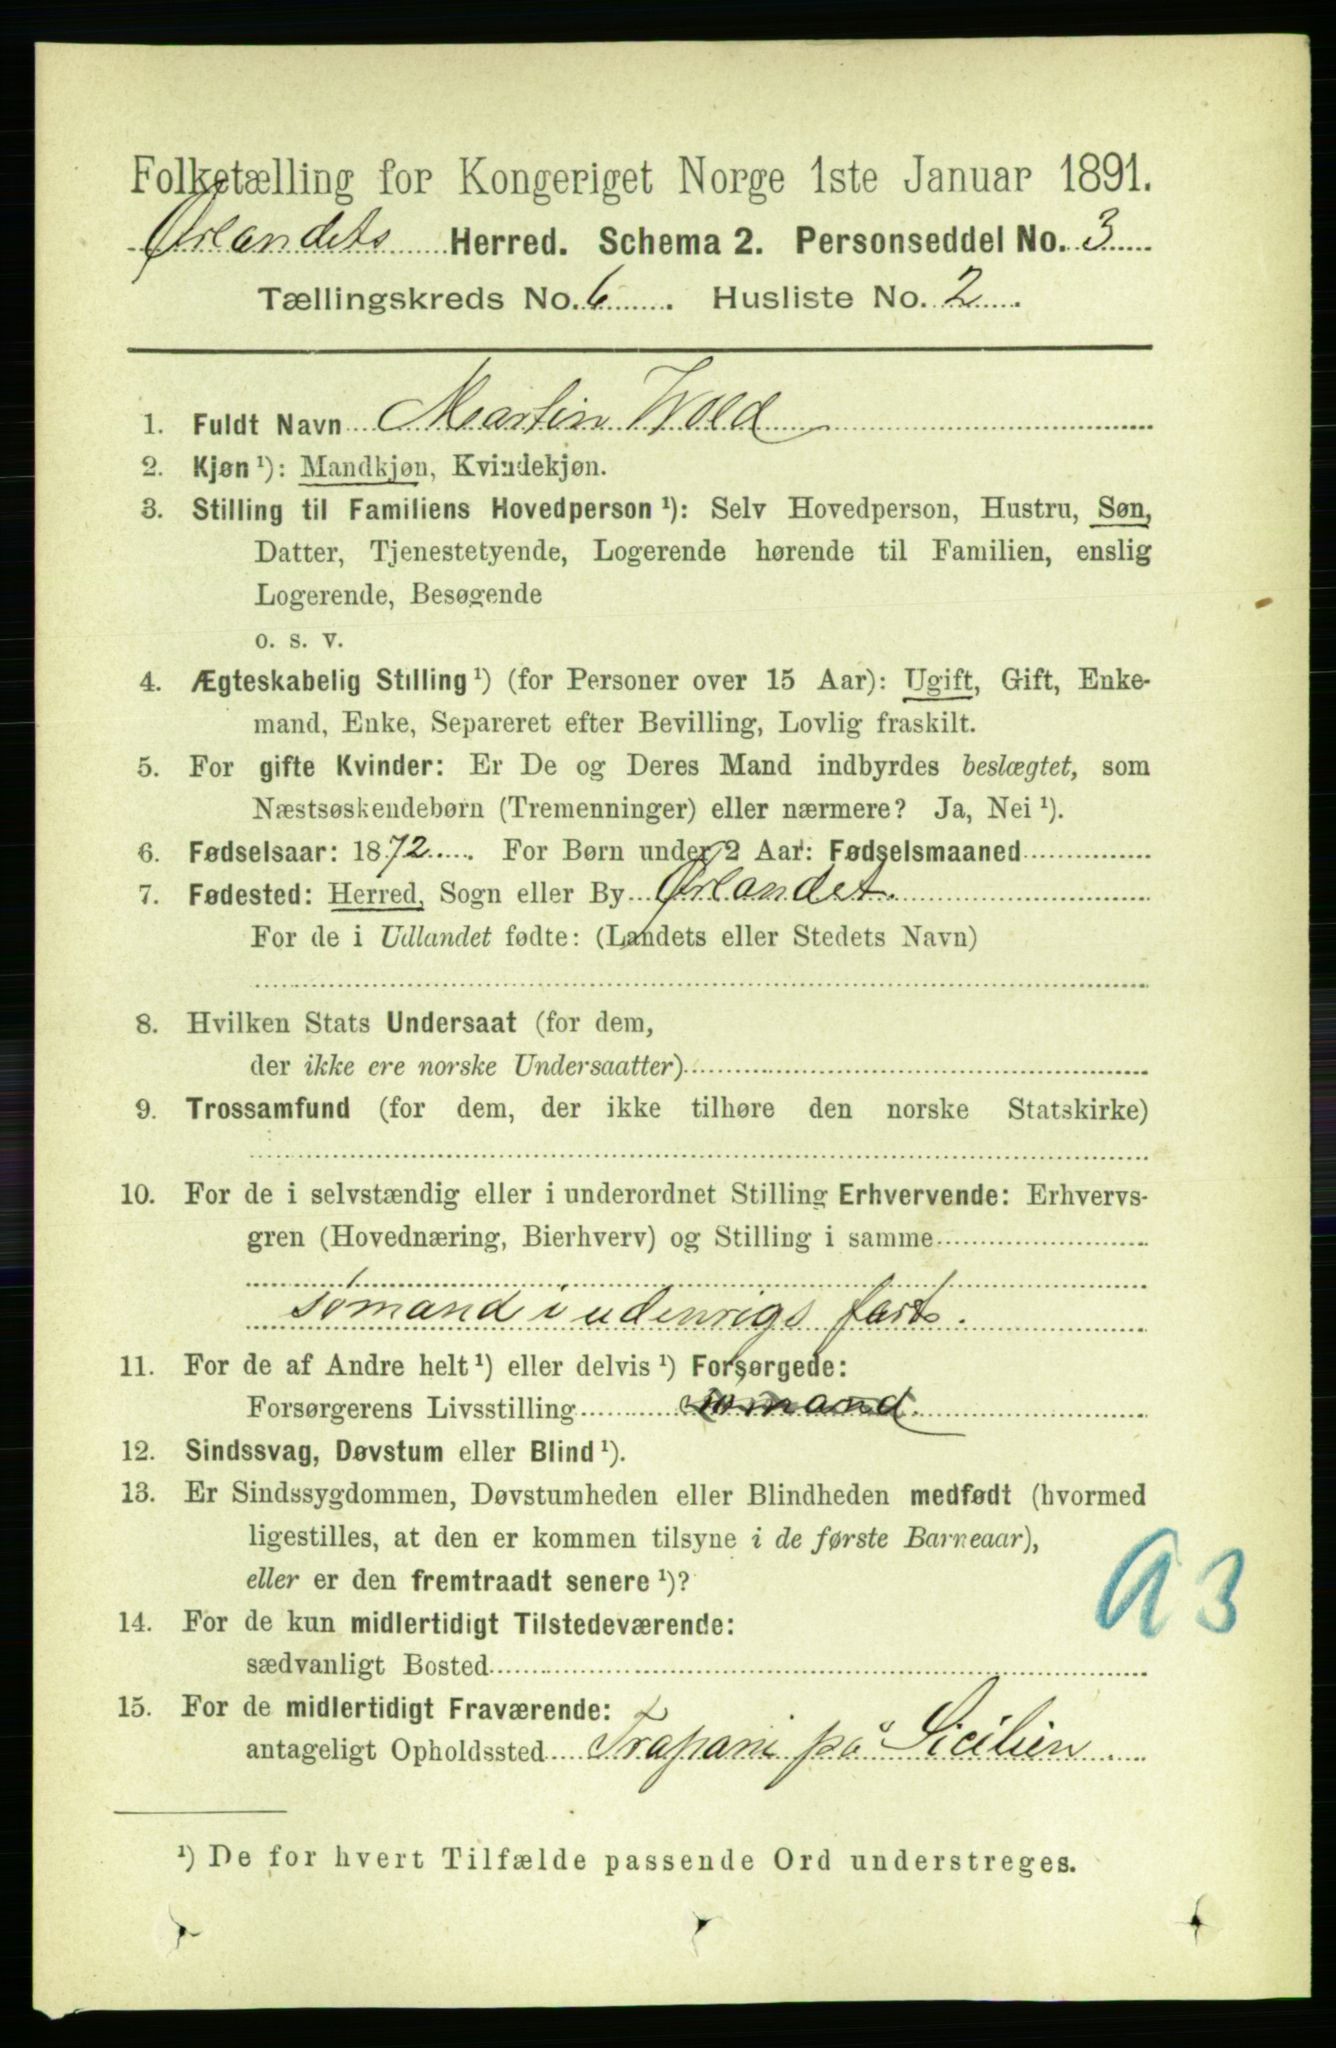 Folketælling for Kongeriget Norge 1ste Januar 1891.
Ørlandets Herred. Schema 2. Personseddel No. 3
Tællingskreds No. 6. Husliste No. 2.
1. Fuldt Navn Martin Wold
2. Kjøn ¹): Mandkjøn, Kvindekjøn.
3. Stilling til Familiens Hovedperson ¹): Selv Hovedperson, Hustru, Søn,
Datter, Tjenestetyende, Logerende hørende til Familien, enslig
Logerende, Besøgende
o. s. v.
4. Ægteskabelig Stilling ¹) (for Personer over 15 Aar): Ugift, Gift, Enke-
mand, Enke, Separeret efter Bevilling, Lovlig fraskilt.
5. For gifte Kvinder: Er De og Deres Mand indbyrdes beslægtet, som
Næstsøskendebørn (Tremenninger) eller nærmere? Ja, Nei ¹).
6. Fødselsaar: 1872. For Børn under 2 Aar: Fødselsmaaned
7. Fødested: Herred, Sogn eller By Ørlandet.
For de i Udlandet fødte: (Landets eller Stedets Navn)
8. Hvilken Stats Undersaat (for dem,
der ikke ere norske Undersaatter)
9. Trossamfund (for dem, der ikke tilhøre den norske Statskirke)
10. For de i selvstændig eller i underordnet Stilling Erhvervende: Erhvervs-
gren (Hovednæring, Bierhverv) og Stilling i samme
sömand i udenrigs farts.
11. For de af Andre helt ¹) eller delvis ¹) Forsørgede:
Forsørgerens Livsstilling sömand
12. Sindssvag, Døvstum eller Blind ¹).
13. Er Sindssygdommen, Døvstumheden eller Blindheden medfødt (hvormed
ligestilles, at den er kommen tilsyne i de første Barneaar),
eller er den fremtraadt senere ¹)?
A3
14. For de kun midlertidigt Tilstedeværende:
sædvanligt Bosted
15. For de midlertidigt Fraværende:
antageligt Opholdssted Trapani på Sicilien.
¹) De for hvert Tilfælde passende Ord understreges.